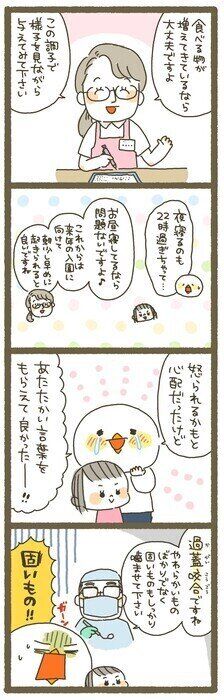 食べる物が
増えてきているなら
大丈夫ですよ
この調子で
様子を見ながら
与えてみて下さい
夜寝るのも
22時過ぎちゃって…
お昼寝してるなら
問題ないですよ♪
これからは
来年の入園に
向けて
少し早めに
起きられると
良いですね
怒られるかもと
心配だったけど
あたたかい言葉を
もらえて良かったー!!
過蓋咬合ですね
やわらかいもの
ばかりでなく
固いものもしっかり
噛ませて下さい
固いもの!!
ガーン